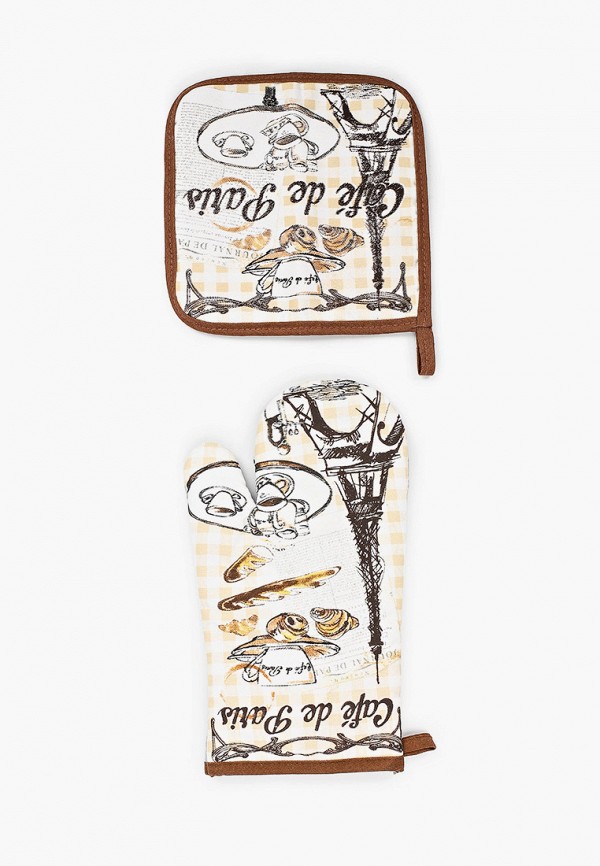 Café de Paris
JOURNAL DE PA
Café de Paris
Café de Paris
JOURNAL DE PA
Café de Paris